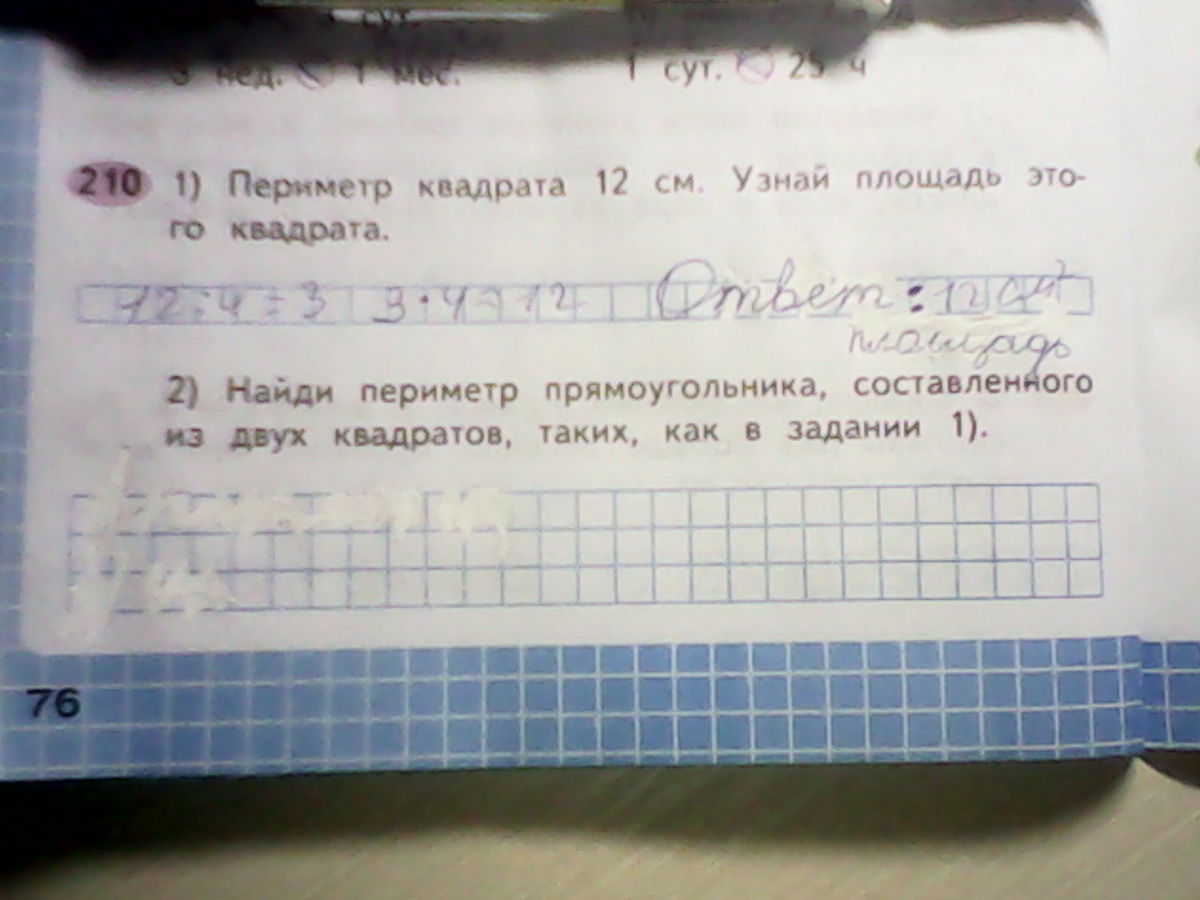 сут.
3 нед. < 1 мес. 1 сут. < 25 ч
210 1) Периметр квадрата 12 см. Узнай площадь это-
го квадрата.
12:4=3 3·4=12 Ответ: 12 см²
площадь
2) Найди периметр прямоугольника, составленного
из двух квадратов, таких, как в задании 1).
76